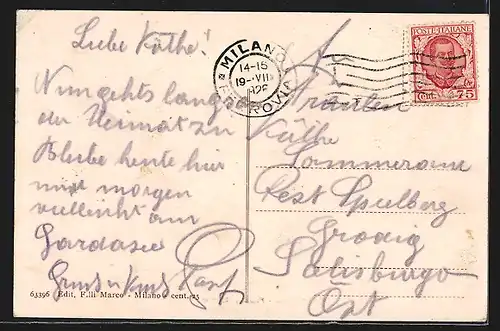 Liebe Käthe!
Nun gehts langs.
der Heimat zu
Bleibe heute hier
und morgen
vielleicht am
Gardasee
Gruss u. Kuss
63396 Edit. F.lli Marco - Milano cent. 25
MILANO
14-15
19·VII
FERROVIA
POSTE ITALIANE
Cent. 75
An
Fräulein
Käthe
Post
Grödig
Salisburgo
Öst